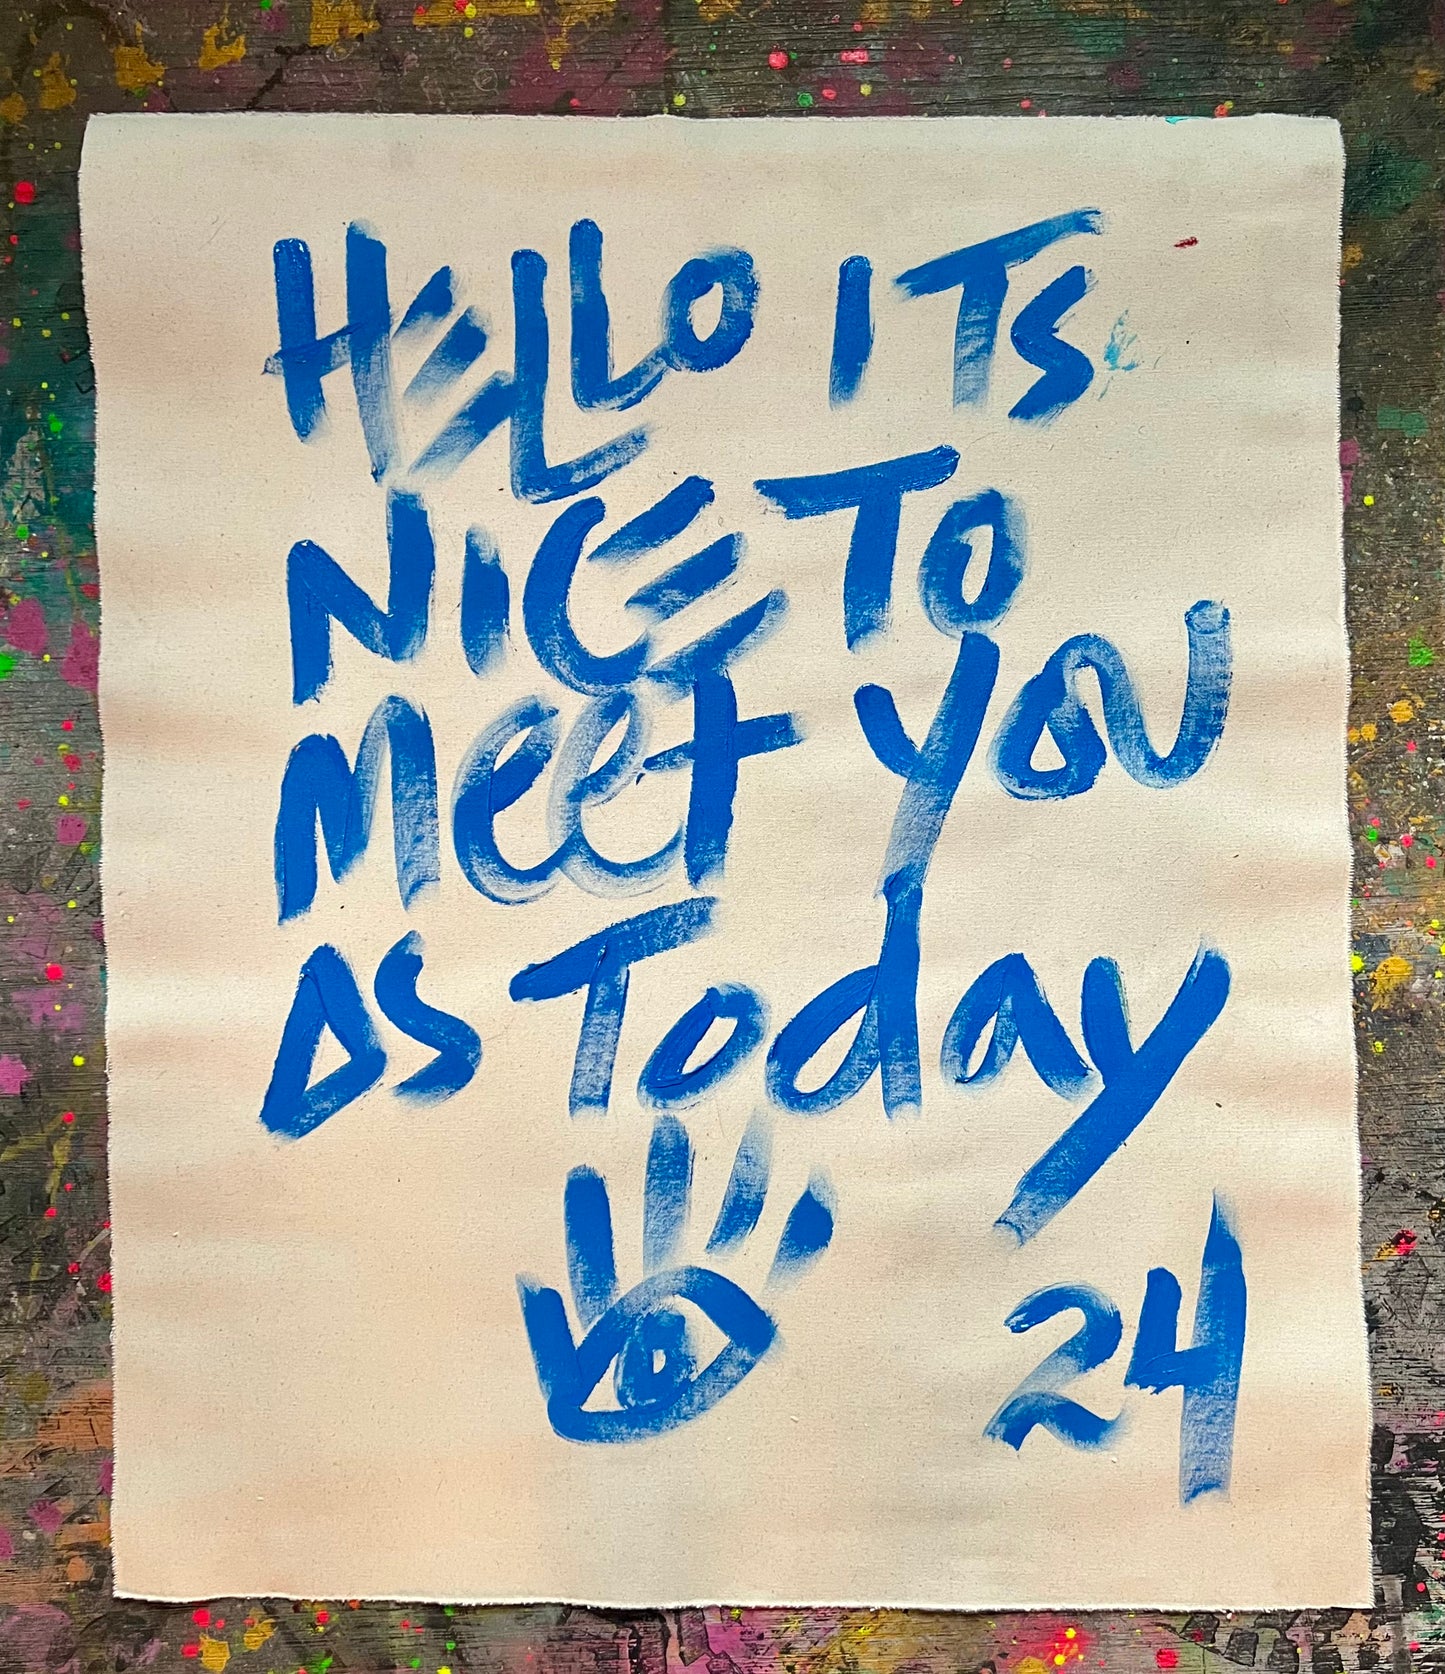 HELLO ITS
NICE TO
MeeT YOU
AS Today
24